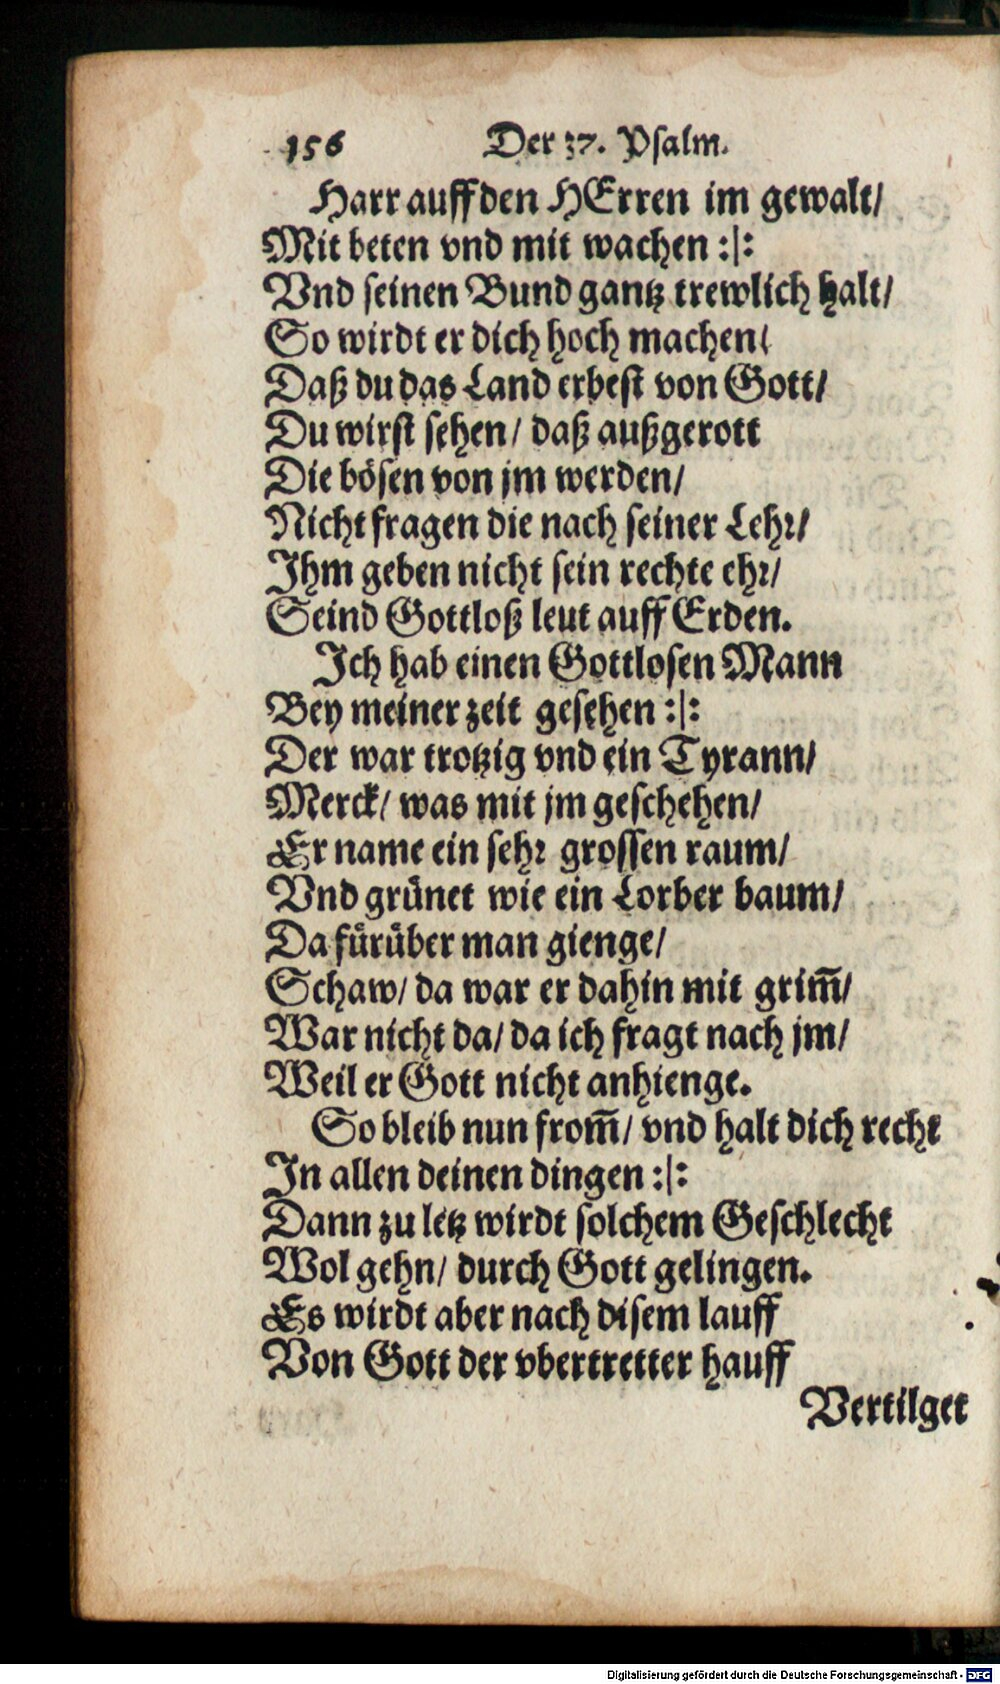 156 Der 37. Psalm.
Harr auff den HErren im gewalt/
Mit beten vnd mit wachen :|:
Vnd seinen Bund gantz trewlich halt/
So wirdt er dich hoch machen/
Daß du das Land erbest von Gott/
Du wirst sehen/ daß außgerott
Die bösen von jm werden/
Nicht fragen die nach seiner Lehr/
Ihm geben nicht sein rechte ehr/
Seind Gottloß leut auff Erden.
Ich hab einen Gottlosen Mann
Bey meiner zeit gesehen :|:
Der war trotzig vnd ein Tyrann/
Merck/ was mit jm geschehen/
Er name ein sehr grossen raum/
Vnd grünet wie ein Lorber baum/
Da fürüber man gienge/
Schaw/ da war er dahin mit grim̅/
War nicht da/ da ich fragt nach jm/
Weil er Gott nicht anhienge.
So bleib nun from̅/ vnd halt dich recht
In allen deinen dingen :|:
Dann zu letz wirdt solchem Geschlecht
Wol gehn/ durch Gott gelingen.
Es wirdt aber nach disem lauff
Von Gott der vbertretter hauff
Vertilget
Digitalisierung gefördert durch die Deutsche Forschungsgemeinschaft - DFG